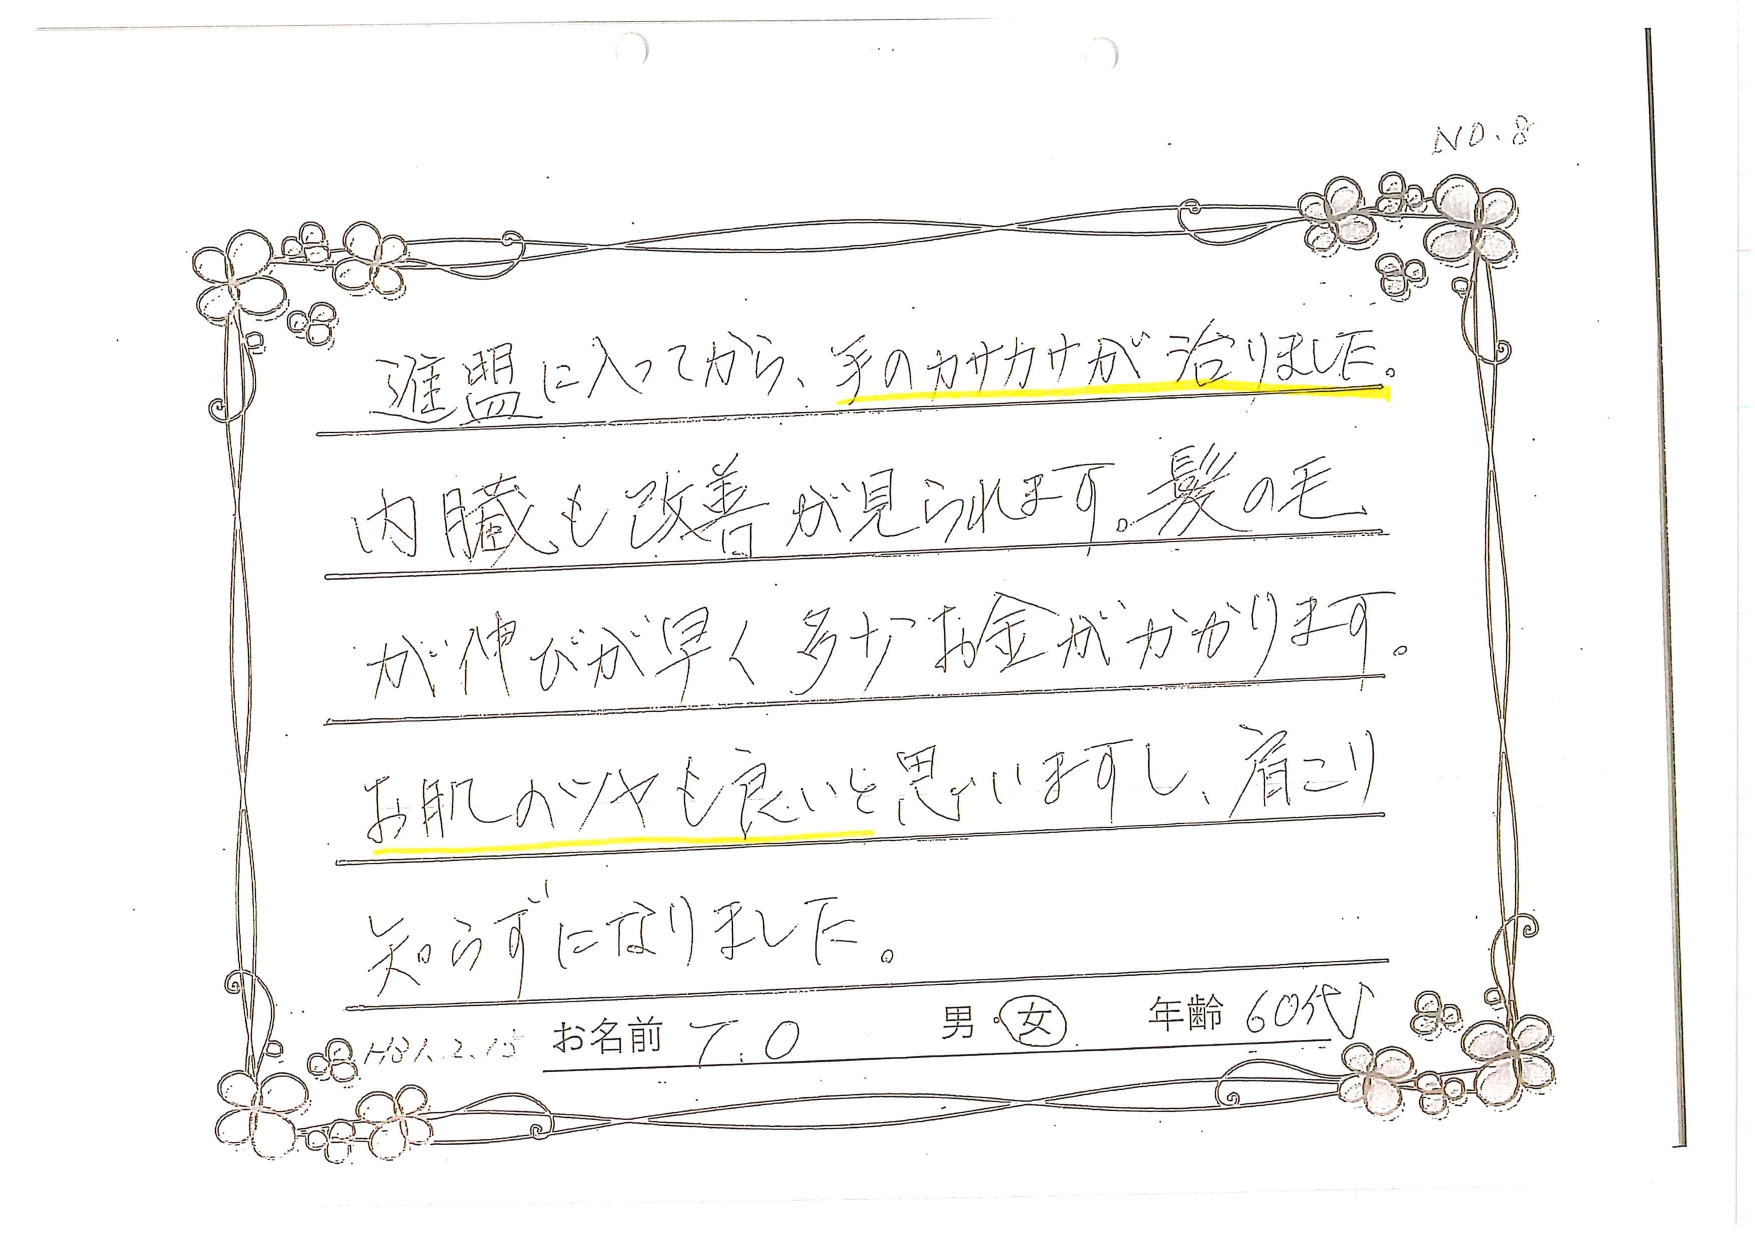 NO.8
進盟に入ってから、手のカサカサが治りました。
内臓も改善が見られます。髪の毛
が伸びが早く多少お金がかかります。
お肌のツヤも良いと思いますし、肩こり
知らずになりました。
H31.2.15 お名前 T.O 男・女 年齢 60代